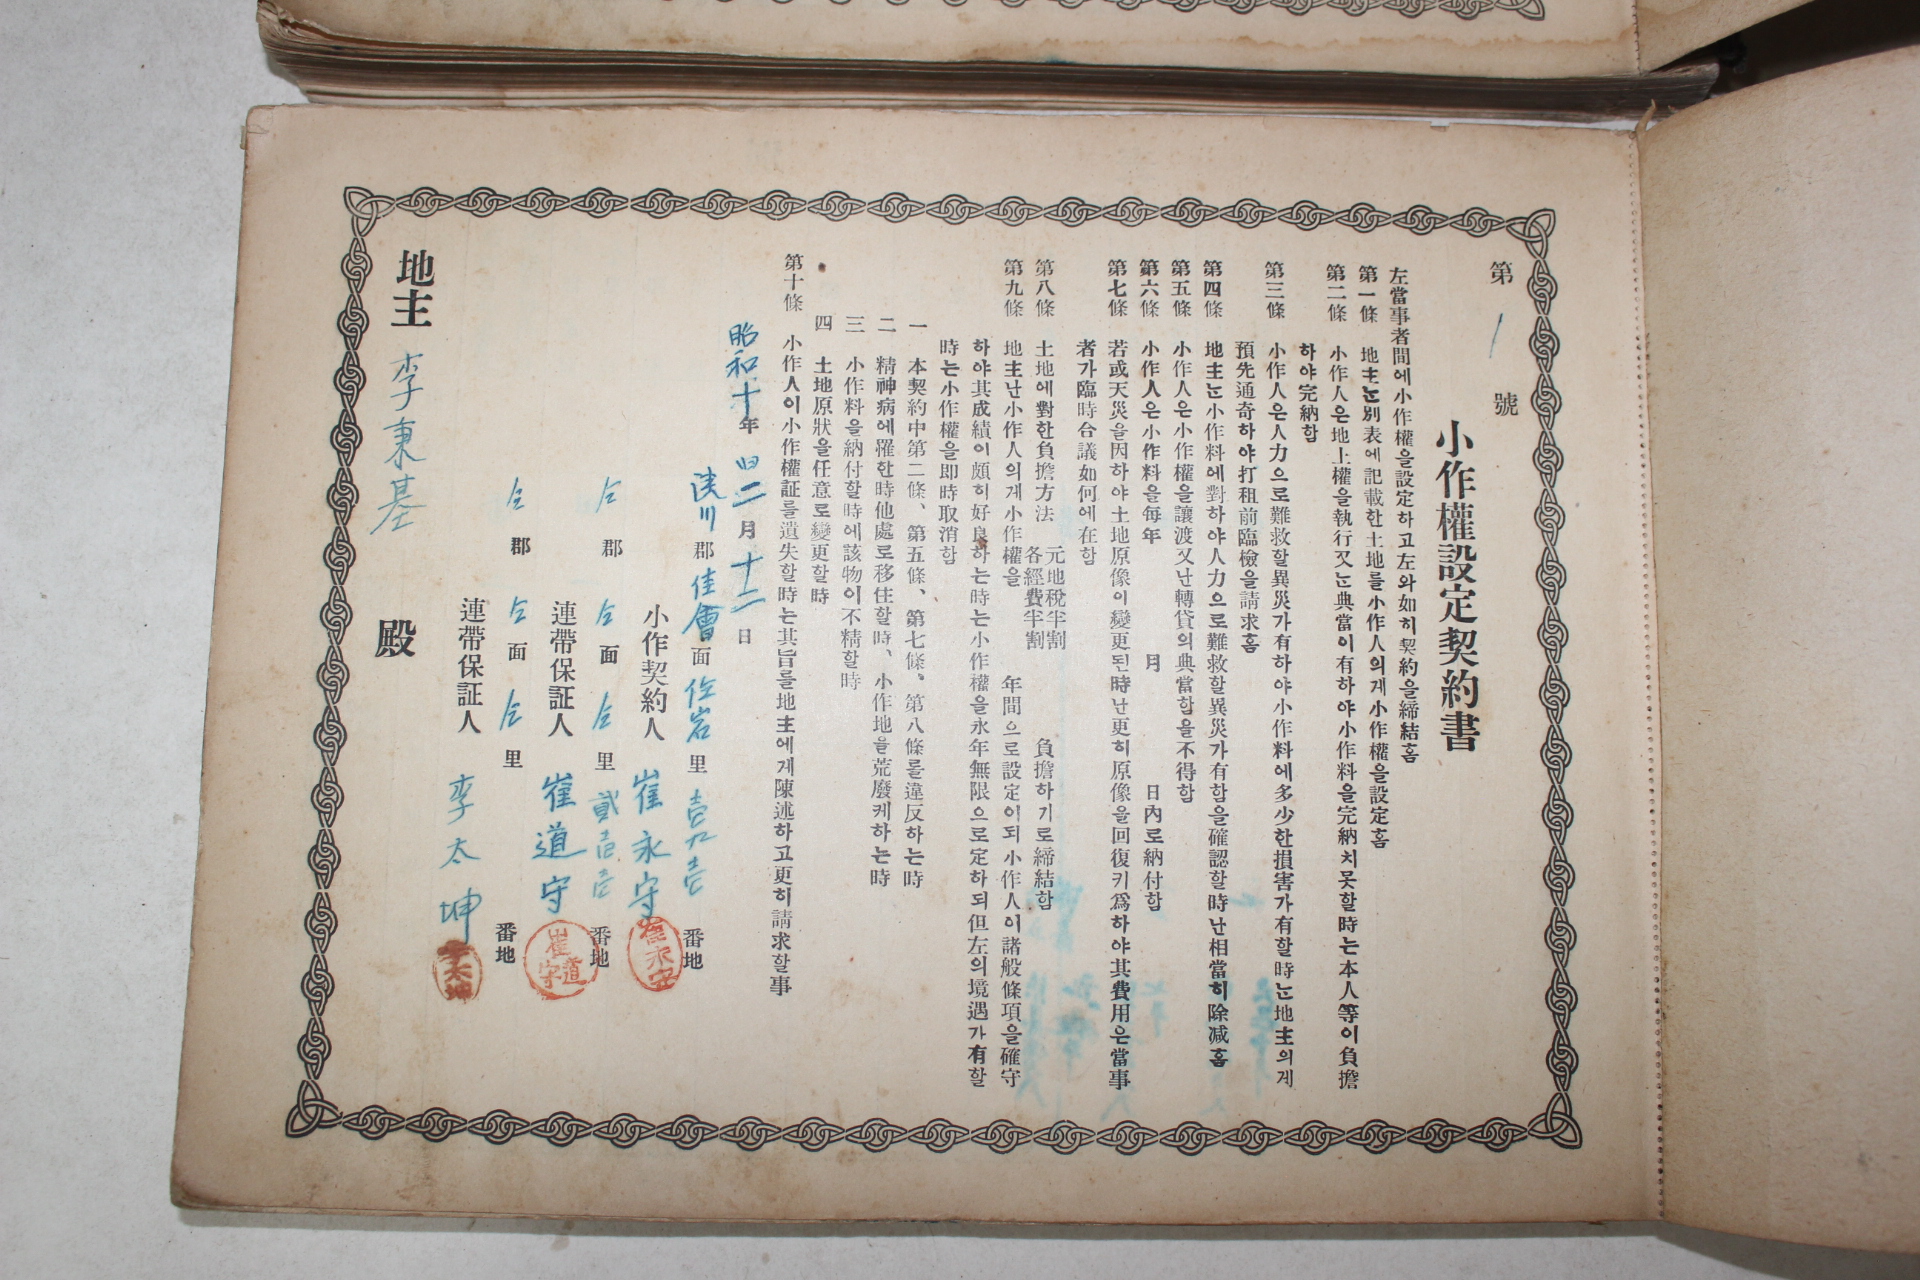 第 1 號
小作權設定契約書
左當事者間에小作權을設定하고左와如히契約을締結홈
第一條 地主는別表에記載한土地를小作人의게小作權을設定홈
第二條 小作人은地上權을執行又는典當이有하야小作料을完納치못할時는本人等이負擔
하야完納함
第三條 小作人은人力으로難救할異災가有하야小作料에多少한損害가有할時는地主의게
預先通奇하야打租前臨檢을請求홈
第四條 地主는小作料에對하야人力으로難救할異災가有함을確認할時난相當히除減홈
第五條 小作人은小作權을讓渡又난轉貸의典當함을不得함
第六條 小作人은小作料을每年 月 日內로納付함
第七條 若或天災을因하야土地原像이變更된時난更히原像을回復키爲하야其費用은當事
者가臨時合議如何에在함
第八條 土地에對한負擔方法 元地稅半割 各經費半割 負擔하기로締結함
第九條 地主난小作人의게小作權을 年間으로設定이되小作人이諸般條項을確守
하야其成績이頗히好良하는時는小作權을永年無限으로定하되但左의境遇가有할
時는小作權을即時取消함
一 本契約中第二條、第五條、第七條、第八條를違反하는時
二 精神病에罹한時他處로移住할時、小作地을荒廢케하는時
三 小作料을納付할時에該物이不精할時
四 土地原狀을任意로變更할時
第十條 小作人이小作權証를遺失할時는其旨를地主에게陳述하고更히請求할事
昭和十年 四二月十二日
陜川郡佳會面 岩里 壹九壹 番地
小作契約人 崔永守 崔永守
仝郡 仝面 仝里 貳壹壹 番地
連帶保証人 崔道守 崔道守
仝郡 仝面 仝里 番地
連帶保証人 李太坤 李太坤
地主 李秉基 殿